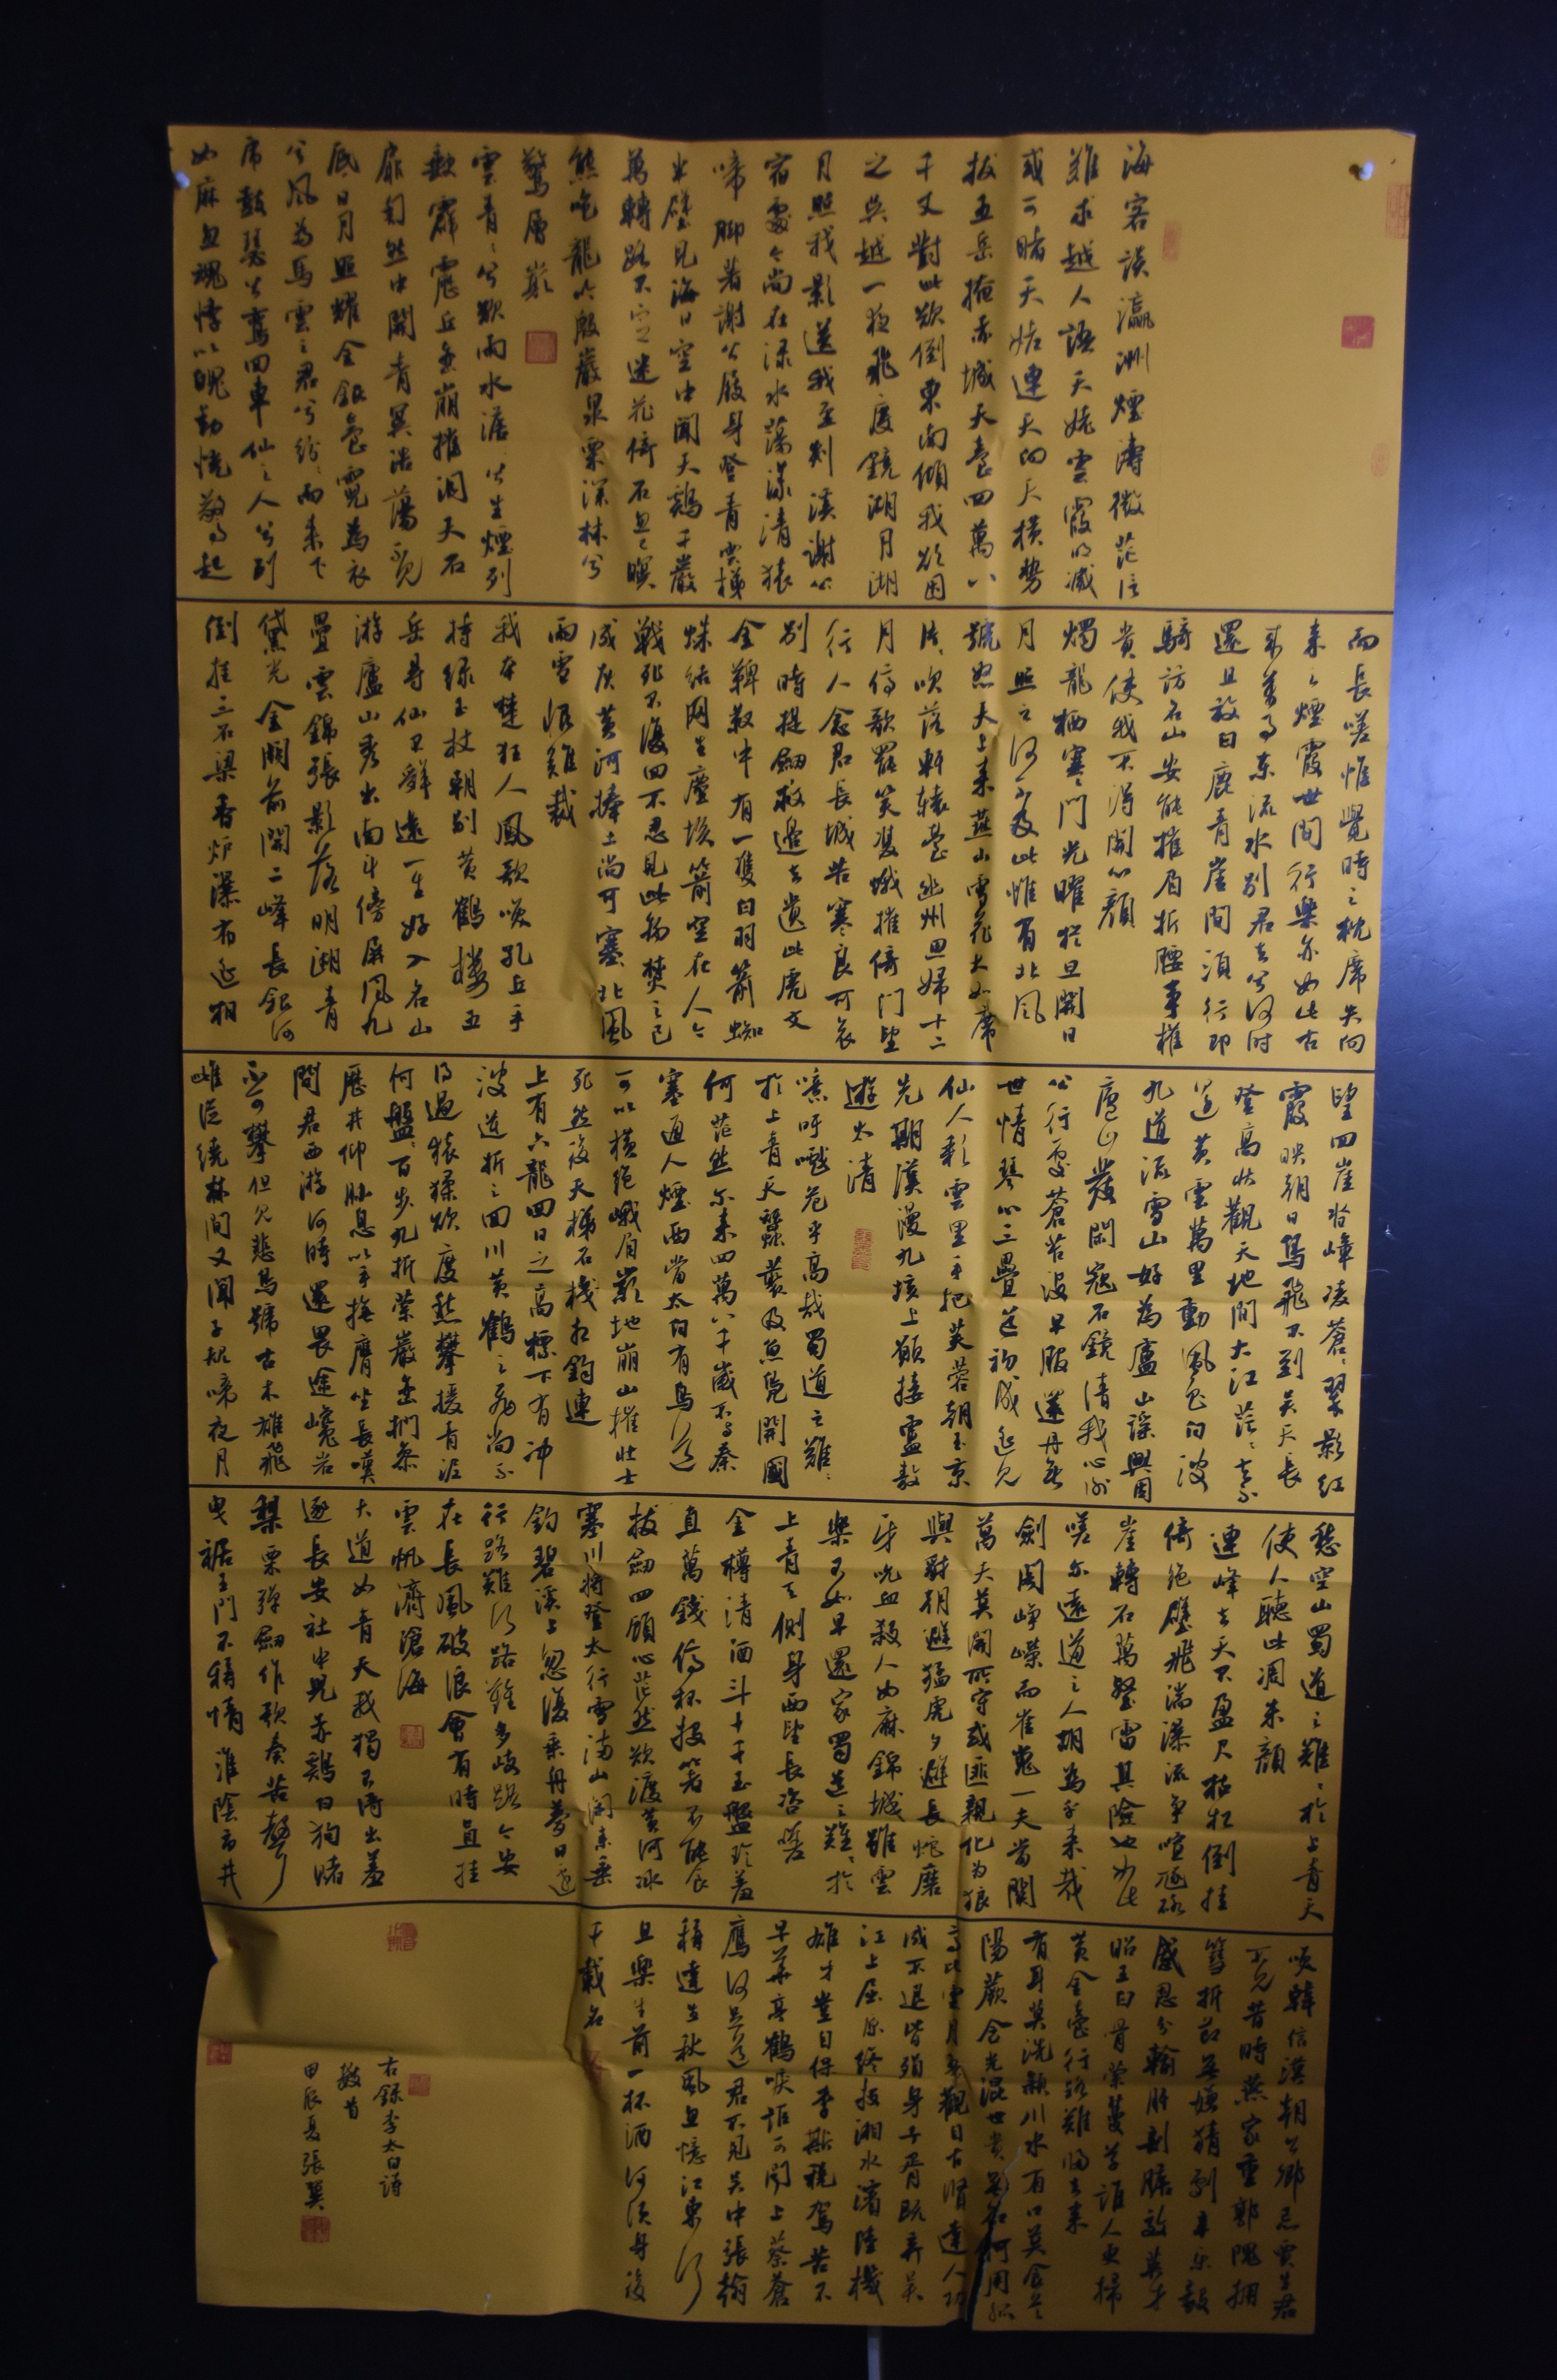 海客談瀛洲煙濤微茫信
難求越人語天姥雲霞明滅
或可睹天姥連天向天橫勢
拔五岳掩赤城天臺四萬八
千丈對此欲倒東南傾我欲因
之吳越一夜飛度鏡湖月湖
月照我影送我至剡溪謝公
宿處今尚在淥水蕩漾清猿
啼腳著謝公屐身登青雲梯
半壁見海日空中聞天鷄千巖
萬轉路不定迷花倚石忽已暝
熊咆龍吟殷巖泉栗深林兮
驚層巔
雲青青兮欲雨水澹澹兮生煙列
缺霹靂丘巒崩摧洞天石
扉訇然中開青冥浩蕩不見
底日月照耀金銀臺霓為衣
兮風為馬雲之君兮紛紛而來下
虎鼓瑟兮鸞回車仙之人兮列
如麻忽魂悸以魄動恍驚起
而長嗟惟覺時之枕席失向
來之煙霞世間行樂亦如此古
來萬事東流水別君去兮何時
還且放白鹿青崖間須行即
騎訪名山安能摧眉折腰事權
貴使我不得開心顏
燭龍栖寒門光曜猶旦開日
月照之何不及此惟有北風
號怒天上來燕山雪花大如席
片片吹落軒轅臺幽州思婦十二
月停歌罷笑雙蛾摧倚門望
行人念君長城苦寒良可哀
別時提劍救邊去遺此虎文
金鞞靫中有一雙白羽箭蜘
蛛結網生塵埃箭空在人今
戰死不復回不忍見此物焚之已
成灰黃河捧土尚可塞北風
雨雪恨難裁
我本楚狂人鳳歌笑孔丘手
持綠玉杖朝別黃鶴樓五
岳尋仙不辭遠一生好入名山
游廬山秀出南斗傍屏風九
疊雲錦張影落明湖青
黛光金闕前開二峰長銀河
倒挂三石梁香炉瀑布遙相
望回崖沓嶂凌蒼蒼翠影紅
霞映朝日鳥飛不到吳天長
登高壯觀天地間大江茫茫去不
還黃雲萬里動風色白波
九道流雪山好為廬山謠興因
廬山發閑窺石鏡清我心謝
公行處蒼苔沒早服還丹無
世情琴心三疊道初成遙見
仙人彩雲里手把芙蓉朝玉京
先期漢漫九垓上願接盧敖
遊太清
噫吁嚱危乎高哉蜀道之難難
於上青天蠶叢及魚鳧開國
何茫然尔來四萬八千歲不與秦
塞通人煙西當太白有鳥道
可以橫絕峨眉巔地崩山摧壯士
死然後天梯石棧相鉤連
上有六龍回日之高標下有沖
波逆折之回川黃鶴之飛尚不
得過猿猱欲度愁攀援青泥
何盤盤百步九折縈巖巒捫參
歷井仰脅息以手撫膺坐長嘆
問君西游何時還畏途巉岩
不可攀但見悲鳥號古木雄飛
雌從繞林間又聞子規啼夜月
愁空山蜀道之難難於上青天
使人聽此凋朱顏
連峰去天不盈尺枯松倒挂
倚絕壁飛湍瀑流爭喧豗砯
崖轉石萬壑雷其險也如此
嗟尔遠道之人胡為乎來哉
劍閣崢嶸而崔嵬一夫當關
萬夫莫開所守或匪親化為狼
與豺朝避猛虎夕避長蛇磨
牙吮血殺人如麻錦城雖雲
樂不如早還家蜀道之難難於
上青天側身西望長咨嗟
金樽清酒斗十千玉盤珍羞
直萬錢停杯投箸不能食
拔劍四顧心茫然欲渡黃河冰
塞川將登太行雪滿山閑來垂
釣碧溪上忽復乘舟夢日邊
行路難行路難多歧路今安
在長風破浪會有時直挂
雲帆濟滄海
大道如青天我獨不得出羞
逐長安社中兒赤鷄白狗賭
梨栗彈劍作歌奏苦聲
曳裾王門不稱情淮陰市井
笑韓信漢朝公卿忌賈生君
不見昔時燕家重郭隗擁
篲折節無嫌猜劇辛樂毅
感恩分輸肝剖膽效英才
昭王白骨縈蔓草誰人更掃
黃金臺行路難歸去來
有耳莫洗潁川水有口莫食首
陽蕨含光混世貴無名何用孤
高比雲月吾觀自古賢達人功
成不退皆殞身子胥既弃吳
江上屈原終投湘水濱陸機
雄才豈自保李斯稅駕苦不
早華亭鶴唳詎可聞上蔡蒼
鷹何足道君不見吳中張翰
稱達生秋風忽憶江東行
且樂生前一杯酒何須身後
千載名
右錄李太白詩
數首
甲辰夏張巽